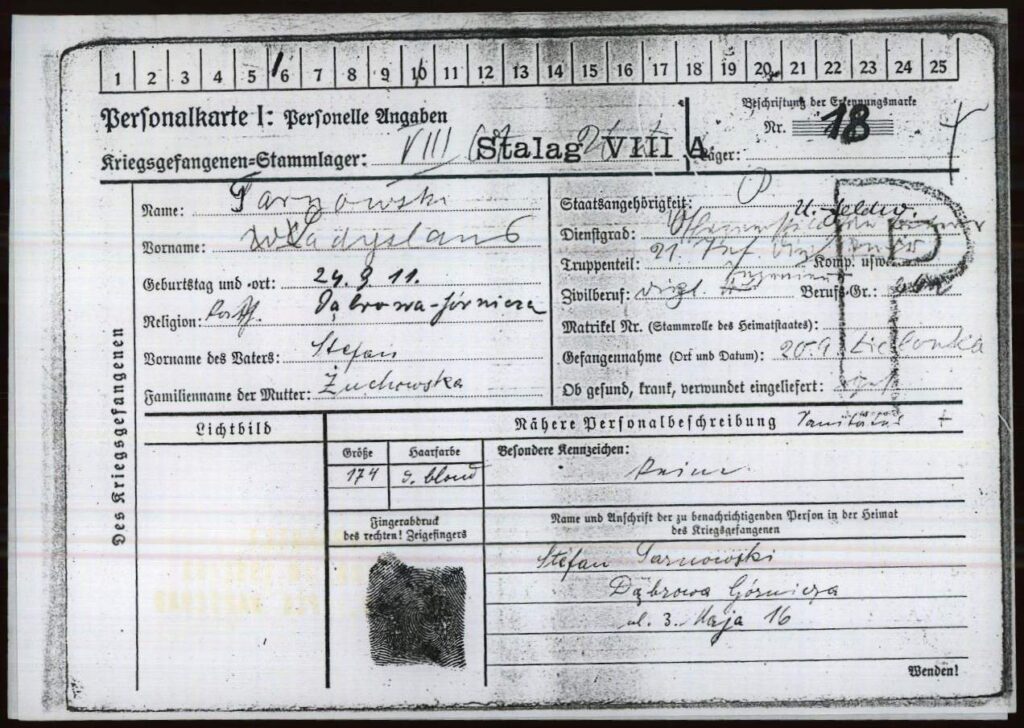 1 2 3 4 5 6 7 8 9 10 11 12 13 14 15 16 17 18 19 20 21 22 23 24 25
Personalkarte I: Personelle Angaben
Beschriftung der Erkennungsmarke
Nr. 18
Kriegsgefangenen-Stammlager: VIII Stalag VIII A Lager:
Des Kriegsgefangenen
Name: Tarnowski
Vorname: Władyslaus
Geburtstag und -ort: 24. 9 11.
Dąbrowa-Górnicza
Religion:
Vorname des Vaters: Stefan
Familienname der Mutter: Żuchowska
Staatsangehörigkeit:
P
Dienstgrad:
Truppenteil: 21. Inf. Komp. usw.
Zivilberuf: Berufs-Gr.:
Matrikel Nr. (Stammrolle des Heimatstaates):
Gefangennahme (Ort und Datum): 20.9.
Ob gesund, krank, verwundet eingeliefert:
Lichtbild
Nähere Personalbeschreibung
Größe Haarfarbe
174 d. blond
Besondere Kennzeichen:
Keine
Fingerabdruck
des rechten! Zeigefingers
Name und Anschrift der zu benachrichtigenden Person in der Heimat
des Kriegsgefangenen
Stefan Tarnowski
Dąbrowa Górnicza
ul. 3. Maja 16
Wenden!